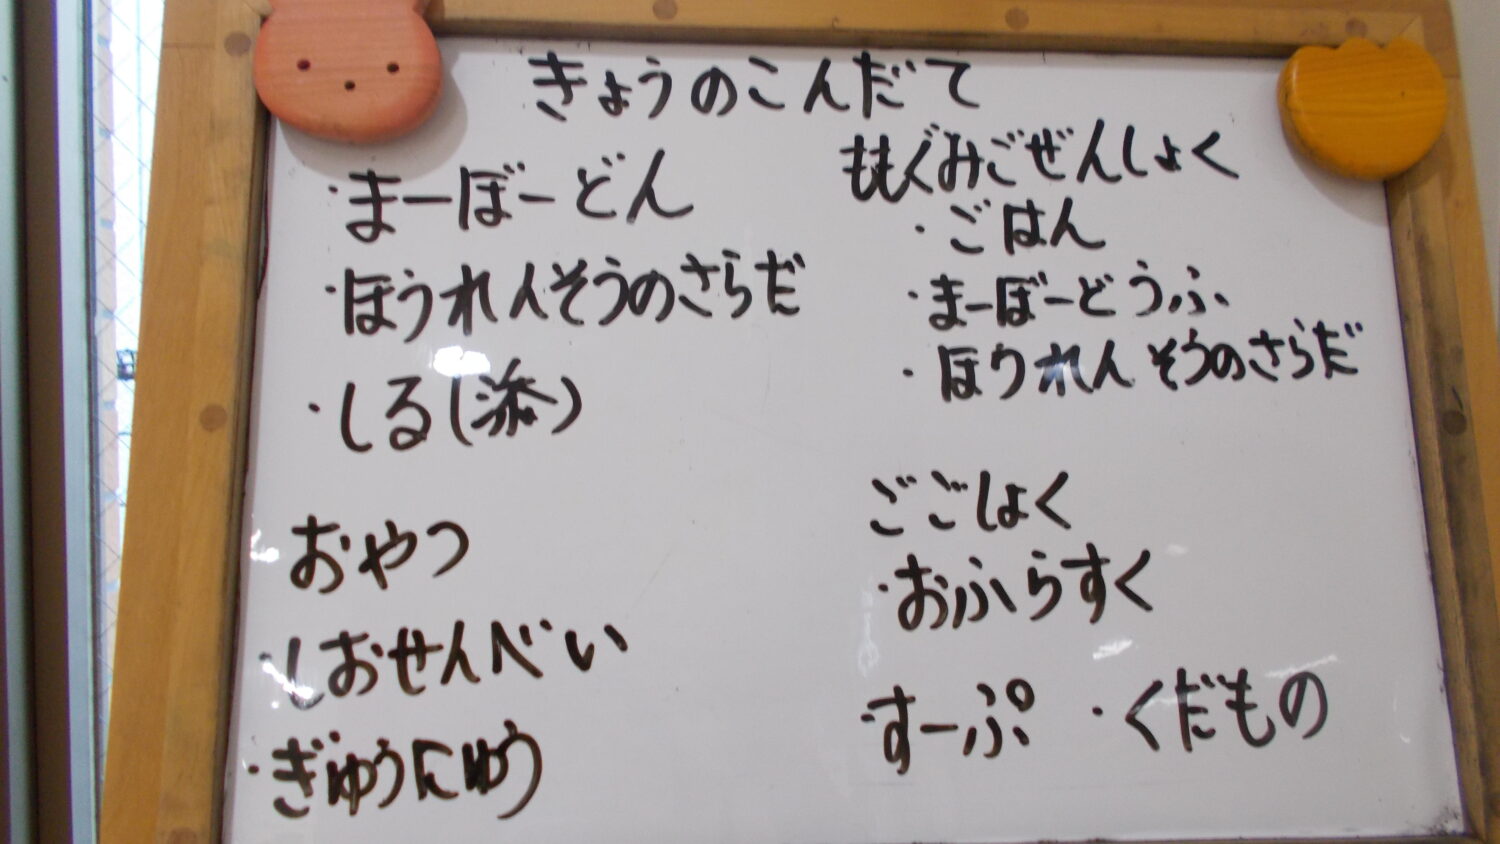 きょうのこんだて
・まーぼーどん
・ほうれんそうのさらだ
・しる(添)
おやつ
・しおせんべい
・ぎゅうにゅう
ももぐみごぜんしょく
・ごはん
・まーぼーどうふ
・ほうれんそうのさらだ
ごごしょく
・おふらすく
・すーぷ ・くだもの